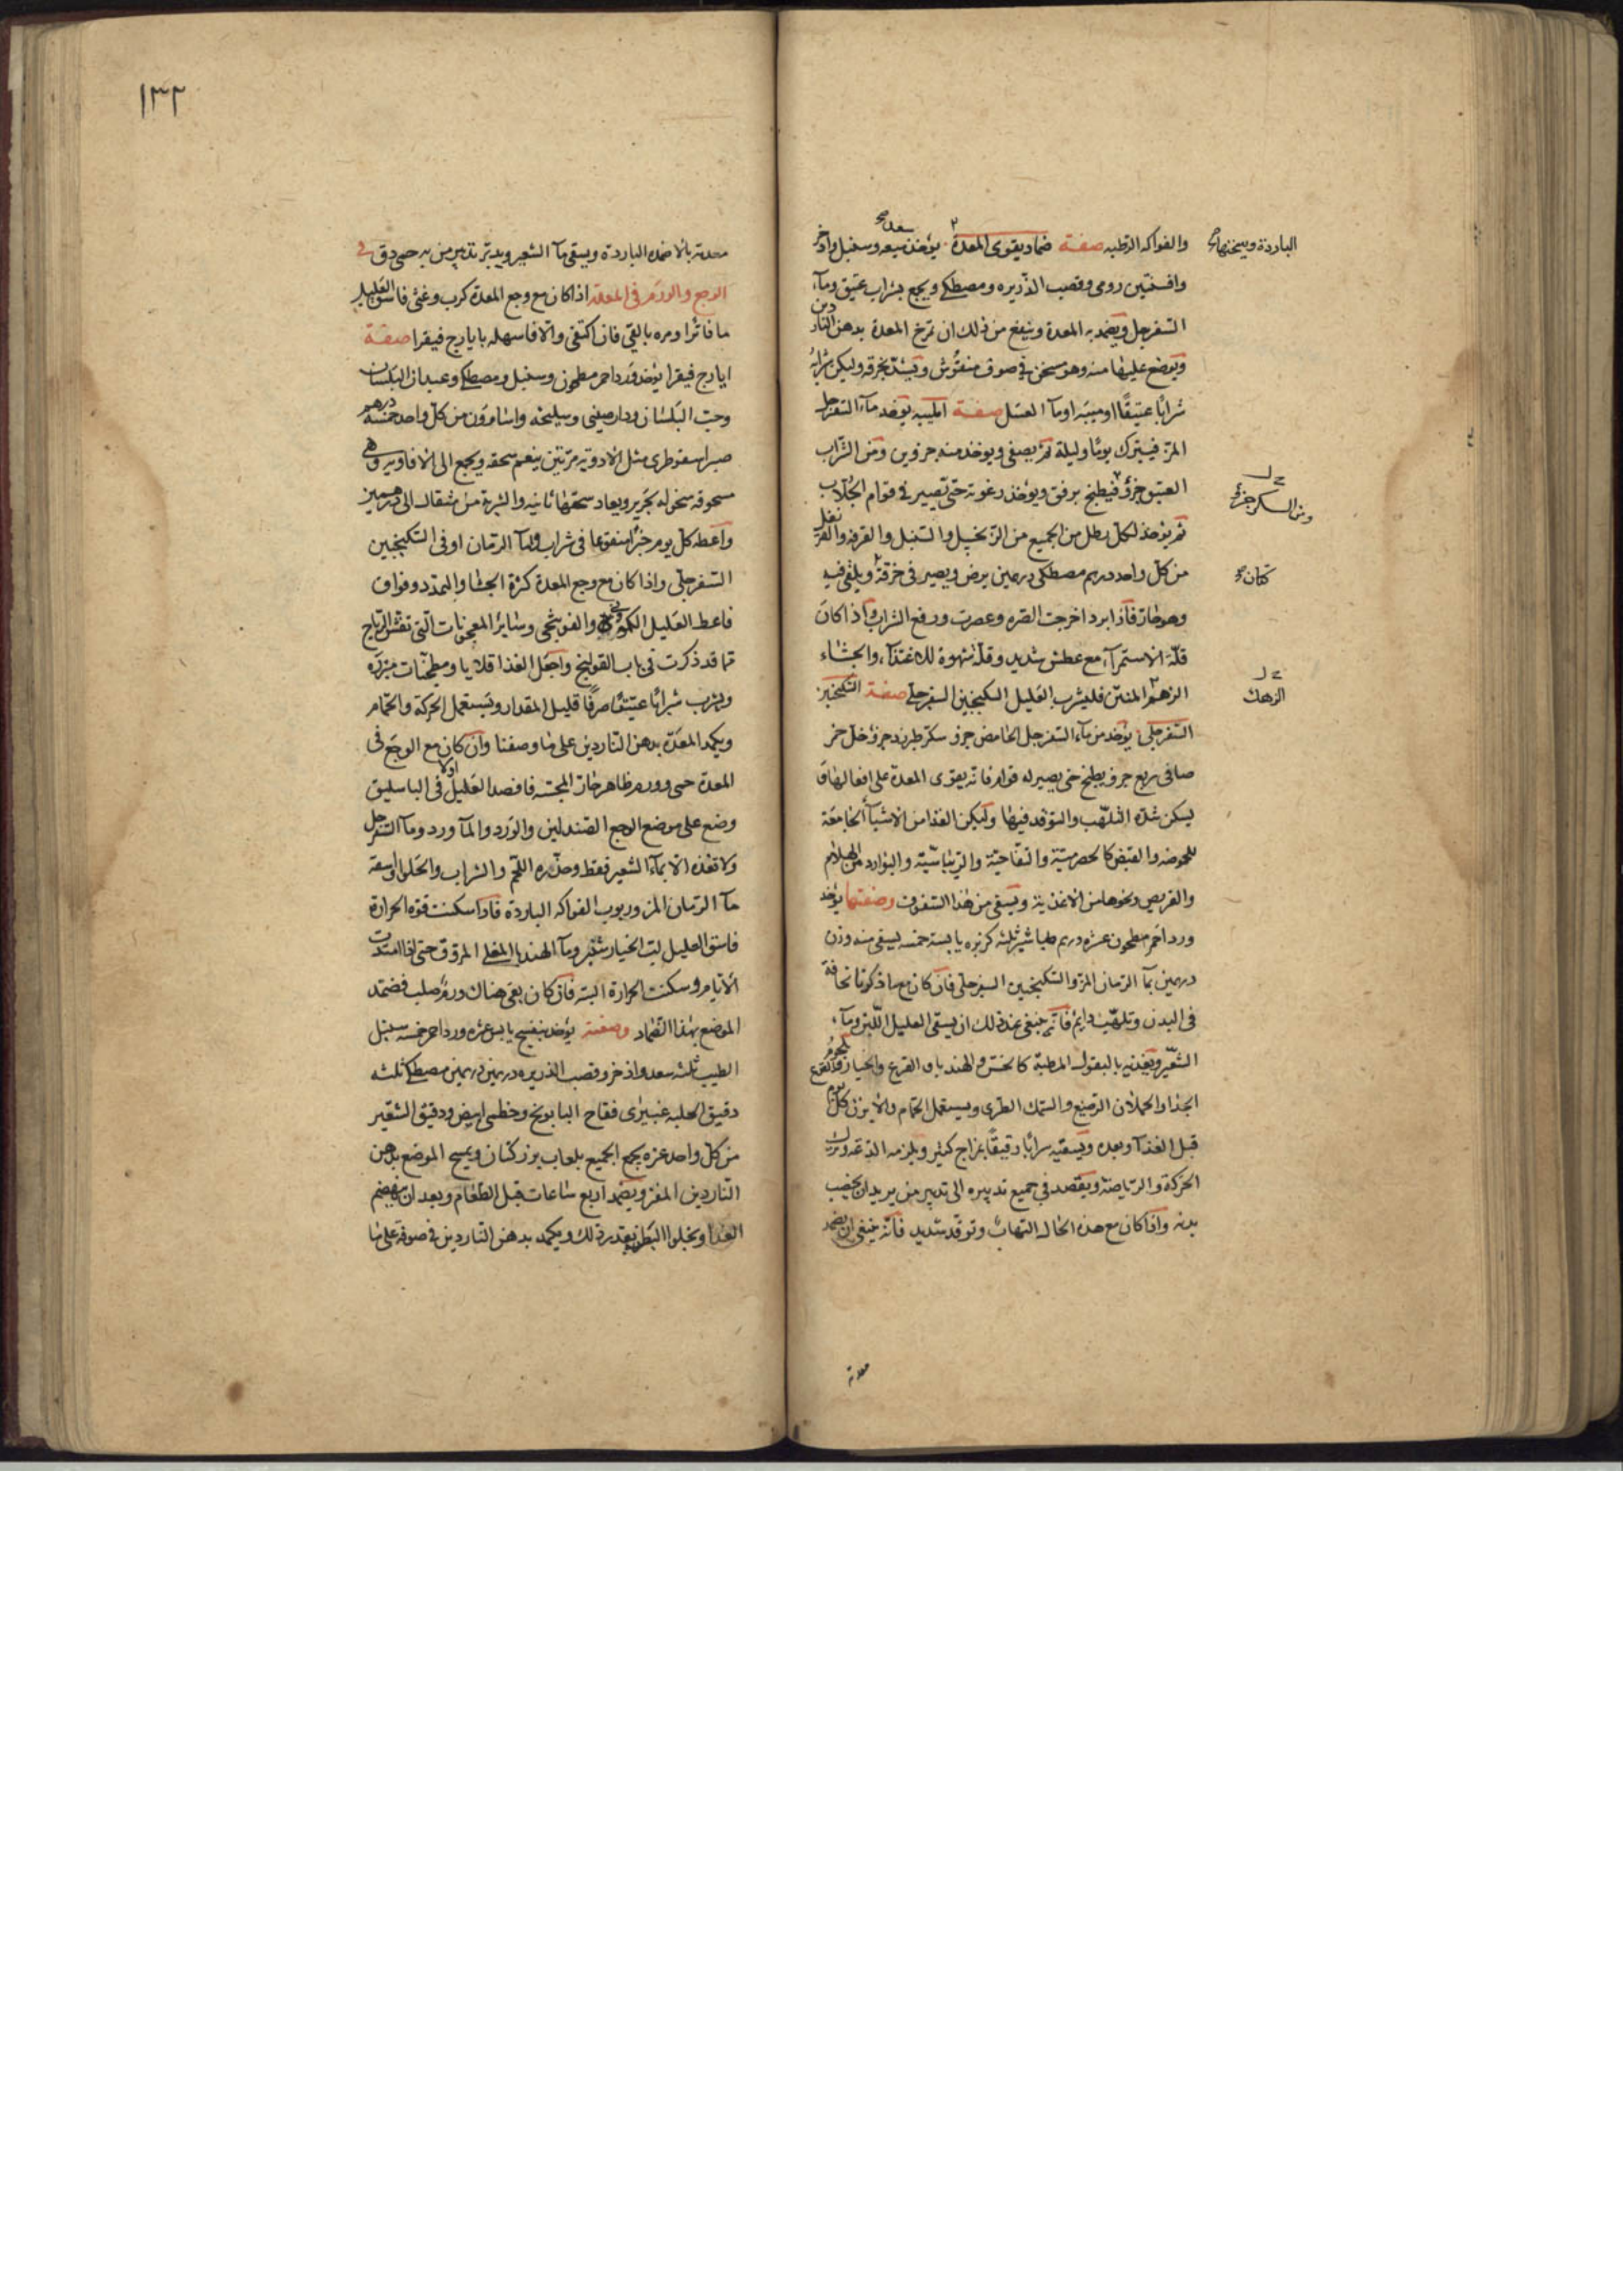 والفواكه الرطبه صفة ضماد يقوى المعدة يؤخذ ميعه وسنبل واذخر
سعد صح
الباردة ويسخنها صح
وافسنتين رومى وقصب الذريره ومصطكى ويجمع بشراب عتيق وماء
السفرجل ويضمد به المعدة وينفع من ذلك ان تمرخ المعدة بدهن الناردين
ويوضع عليها منه وهو سخن فى صوف منفوش ويشد بخرقه وليكن شرابه
شرابا عتيقا او ميبه او ماء العسل صفة الميبه يوخذ ماء السفرجل
المز فيترك يوما وليلة ثم يصفى ويوخذ منه جزوين ومن الشراب
العتيق جزؤ فيطبخ برفق ويؤخذ رغوته حتى تصير فى قوام الجلاب
ومن السكر جزء
ثم يؤخذ لكل رطل من الجميع من الزنجبيل والسنبل والقرفه والقرنفل
من كل واحد درهم مصطكى درهمين يرض ويصير فى خرقة ويلقى فيه
كتان صح
وهو حار فاذا برد اخرجت الصره وعصرت ورفع الشراب واذا كان
قلة الاستمراء مع عطش شديد وقلة شهوة للاغتذاء والجشاء
الزهم المنتن فليشرب العليل السكنجبين السفرجلى صفة السكنجبين
الزهك
السفرجلى يؤخذ من ماء السفرجل الحامض جزؤ سكر طبرزد جزؤ خل خمر
صافى ربع جزؤ يطبخ حتى يصير له قوام فانه يقوى المعدة على افعالها و
يسكن شدة التلهب والتوقد فيها وليكن الغذا من الاشياء الجامعة
للحموضه والقبض كالحصرمية والتفاحية والريباسية والبوارد من الهلام
والقريص ونحوها من الاغذية ويسقى من هذا السفوف وصفتها يؤخذ
ورد احمر مطحون عشره درهم طباشير ثلثه كزبره يابسة خمسه يسقى منه وزن
درهمين بماء الرمان المز والسكنجبين السفرجلى فان كان مع ما ذكرنا نحافة
فى البدن وتلهب دايم فانه ينبغى عند ذلك ان يسقى العليل اللبن وماء
الشعير ويغذيه بالبقول المطبه كالخس والهندباو القرع والخيار ولحوم
الجدا والحملان الرضيع والسمك الطرى ويستعمل الحمام والابزن كل يوم
قبل الغذا وبعده ويسقيه شرابا رقيقا بمزاج كثير ويلزمه الدعه وترك
الحركة والرياضه ويقصد فى جميع تدبيره الى تدبير من يريد ان يخصب
بدنه واذا كان مع هذه الحاله التهاب وتوقد شديد فانه ينبغى ان يضمد
معدته
١٣٢
معدته بالاضمده البارده ويسقى ماء الشعير ويدبر تدبير من به حمى دق فى
الوجع والورم فى المعدة اذا كان مع وجع المعدة كرب وغثى فاسق العليل
ما فاترا ومره بالقى فان اكتفى والا فاسهله بايارج فيقرا صفة
ايارج فيقرا يؤخذ ورد احمر مطحون وسنبل ومصطكى وعيدان البلسان
وحب البلسان ودارصينى وسليخه واسارون من كل واحد خمسه درهم
صبر اسقوطرى مثل الادوية مرتين ينعم سحقه ويجمع الى الافاويه وهى
مسحوقه منخوله بحرير ويعاد سحقها ثانيه والشربة من مثقال الى درهمين
واعطه كل يوم خبزا منقوعا فى شراب وماء الرمان او فى السكنجبين
السفرجلى واذا كان مع وجع المعدة كثرة الجشا والتمدد وفواق
فاعط العليل الكمونى والفوتنجى وسائر المعجونات التى تفش الرياح
مما قد ذكرت فى باب القولنج واجعل الغذا قلايا ومطجنات مبزره
ويشرب شرابا عتيقا صرفا قليل المقدار ويستعمل الحركة والحمام
ويكمد المعدة بدهن الناردين على ما وصفنا وان كان مع الوجع فى
المعدة حمى وورم ظاهر حار المجسه فافصد العليل اولا فى الباسليق
وضع على موضع الوجع الصندلين والورد والماورد وماء السفرجل
ولا تغذه الا بماء الشعير فقط وحذره اللحم والشراب والحلوا واسقه
ماء الرمان المز وربوب الفواكه الباردة فاذا سكنت قوة الحرارة
فاسق العليل لب الخيارشنبر وماء الهندبا المغلى المروق حتى اذا امتدت
الايام وسكنت الحرارة البته فان كان بقى هناك ورم صلب فضمد
الموضع بهذا الضماد وصفته يؤخذ بنفسج يابس عشره ورد احمر خمسه سنبل
الطيب ثلثه سعد واذخر وقصب الذريره درهمين درهمين مصطكى ثلثه
دقيق الحلبه فقاح البابونج وخطمى ابيض ودقيق الشعير
من كل واحد عشره يجمع الجميع بلعاب بزر كتان ويمسح الموضع بدهن
الناردين المفتر ويضمد اربع ساعات قبل الطعام وبعد ان ينهضم
الغذا ويخلوا البطن بقدر ذلك ويكمد بدهن الناردين فى صوفة على ما